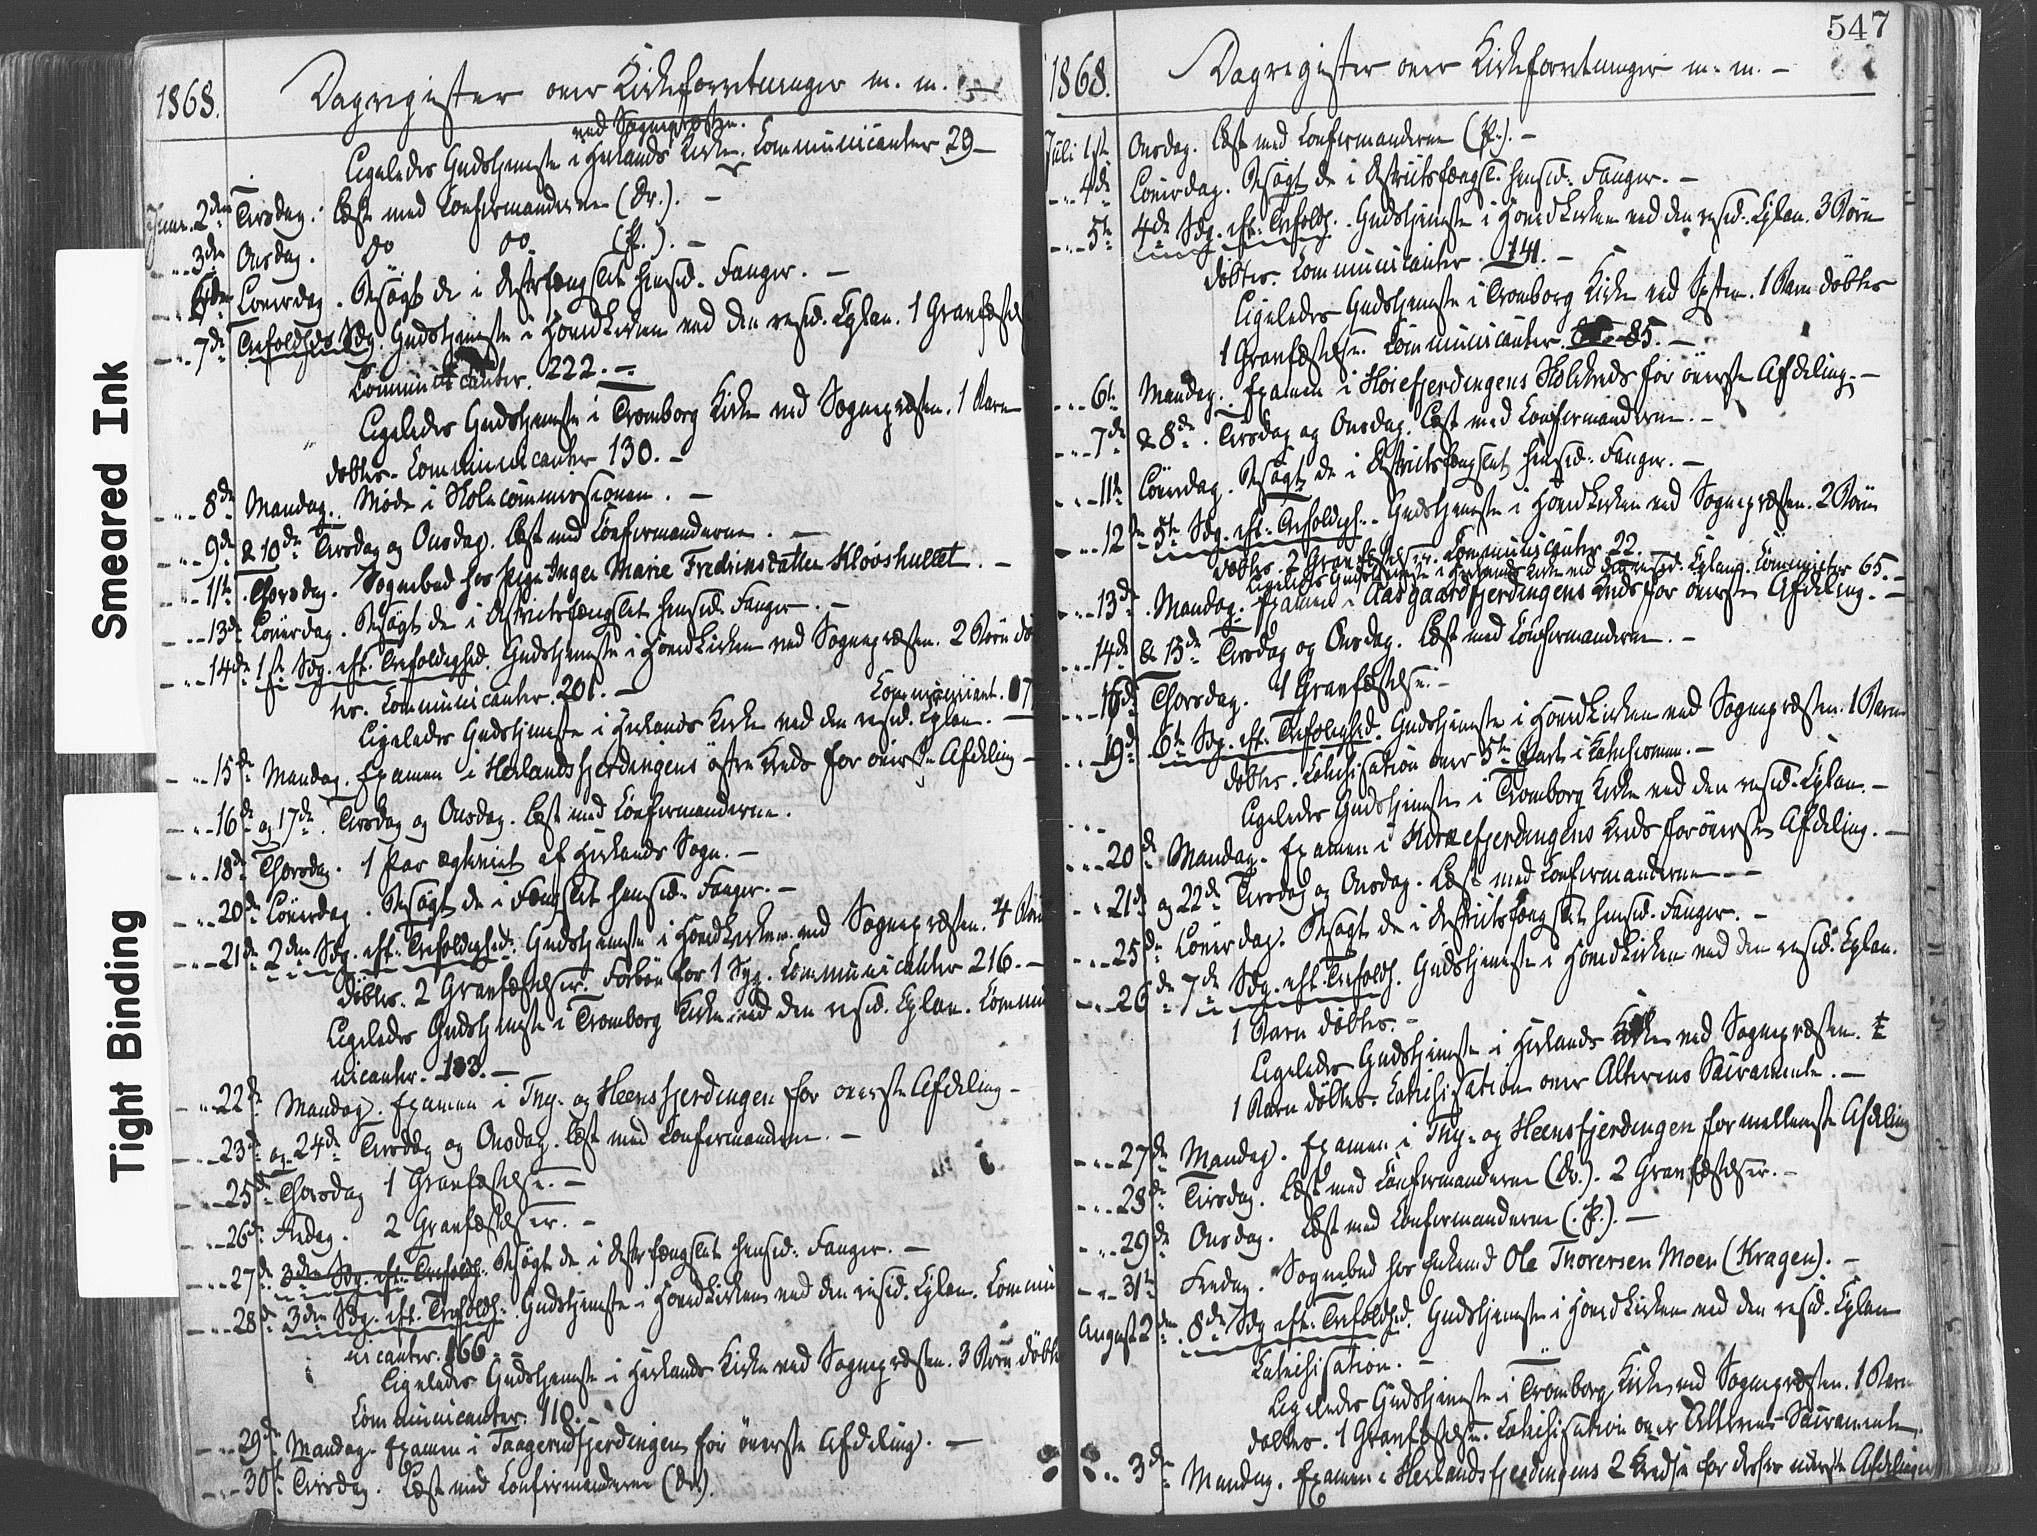 Smeared Ink
Tight Binding
1868. Dagregister over Kirkeforretninger m. m. –
ved Sognepræsten.
Ligeledes Gudstjeneste i Herlands Kirke. Communicanter 29 –
Juni 2den Tirsdag. Læst med Confirmanderne (Dr.). –
3die Onsdag. Do Do (P.). –
6te Löverdag. Besøgt de i Distrfængslet hensid. Fanger. –
7de Trefoldheds Sdg. Gudstjeneste i Hovedkirken ved den resid. Cplan. 1 Gravfæstelse
Communicanter. 222. –
Ligeledes Gudstjeneste i Tromborg Kirke ved Sognepræsten. 1 Barn
döbtes. Communicanter 130. –
8de Mandag. Møde i Skolecommissionen. –
9de & 10de Tirsdag og Onsdag. Læst med Confirmanderne. –
11te Thorsdag. Sognebud hos Pige Inger Marie Fredriksdatter Klöoshullet. –
13de Löverdag. Besøgt de i Distriktsfængslet hensid. Fanger. –
14de 1ste Sdg. eft. Trefoldighed. Gudstjeneste i Hovedkirken ved Sognepræsten. 2 Börn döb
tes. Communicanter. 201. – Communicant. 17
Ligeledes Gudstjeneste i Herlands Kirke ved den resid. Cplan. –
15de Mandag. Examen i Herlandsfjerdingens östre Kreds for överste Afdeling –
16de og 17de. Tirsdag og Onsdag. Læst med Confirmanderne.
18de Thorsdag. 1 Par ægteviet af Herlands Sogn. –
20de Löverdag. Besøgt de i Fængslet hensid. Fanger. –
21de 2den Sdg. eft. Trefoldighed. Gudstjeneste i Hovedkirken ved Sognepræsten. 4 Börn
döbtes. 2 Gravfæstelser. Forbön for 1 Syg. Communicanter 216. –
Ligeledes Gudstjeneste i Tromborg Kirke ved den resid. Cplan. Commu
nicanter. 103. –
22de Mandag. Examen i Thy- og Heensfjerdingen for överste Afdeling –
23de og 24de Tirsdag og Onsdag. Læst med Confirmanderne. –
25de Thorsdag 1 Gravfæstelse. –
26de Fredag. 2 Gravfæstelser. –
27de 3den Sdg. eft. Trefoldh. Besøgt de i Distrfængslet hensid. Fanger. –
28de 3den Sdg. eft. Trefoldh. Gudstjeneste i Hovedkirken ved den resid. Cplan. Commu
nicanter. 166. –
Ligeledes Gudstjeneste i Herlands Kirke ved Sognepræsten. 3 Börn döbtes
Communicanter. 110. –
29de Mandag. Examen i Taagerudfjerdingen for överste Afdeling. –
30te Tirsdag. Læst med Confirmanderne (Dr.)
547
1868. Dagregister over Kirkeforretninger m. m. –
Juli 1ste Onsdag. Læst med Confirmanderne (P.). –
4de Löverdag. Besøgt de i Distriktsfængsl. hensid. Fanger. –
5te 4de Sdg. eft. Trefoldh. Gudstjeneste i Hovedkirken ved den resid. Cplan. 3 Börn
döbtes. Communicanter. 141. –
Ligeledes Gudstjeneste i Tromborg Kirke ved Spsten. 1 Barn döbtes
1 Gravfæstelse. Communicanter. 85. –
6te Mandag. Examen i Høiefjerdingens Skolkreds for överste Afdeling. –
7de & 8de. Tirsdag og Onsdag. Læst med Confirmanderne. –
11te Löverdag. Besøgt de i Distriktsfængslet hensid. Fanger. –
12te 5te Sdg. eft. Trefoldigh. Gudstjeneste i Hovedkirken ved Sognepræsten. 2 Börn
döbtes. 2 Gravfæstelser. Communicanter 22.
Ligeledes Gudstjeneste i Herlands Kirke ved den resid. Cplan. Communicter 65. –
13de Mandag. Examen i Aasgaardfjerdingens Kreds for överste Afdeling. –
14de & 15de Tirsdag og Onsdag. Læst med Confirmanderne. –
16de Thorsdag. 1 Gravfæstelse. –
19de 6te Sdg. eft. Trefoldighed. Gudstjeneste i Hovedkirken ved Sognepræsten. 1 Barn
döbtes. Catechisation over 5te Part i Katechismen. –
Ligeledes Gudstjeneste i Tromborg Kirke ved den resid. Cplan. –
20de Mandag. Examen i Moræfjerdingens Kreds for överste Afdeling. –
21de og 22de Tirsdag og Onsdag. Læst med Confirmanderne –
25de Löverdag. Besøgt de i Distriktsfængslet hensid. Fanger. –
26de 7de Sdg. eft. Trefoldh. Gudstjeneste i Hovedkirken ved den resid. Cplan.
1 Barn döbtes. –
Ligeledes Gudstjeneste i Herlands Kirke ved Sognepræsten.
1 Barn döbtes. Catechisation over Alterens Sacramente. –
27de Mandag. Examen i Thy- og Heensfjerdingen for mellemste Afdeling
28de Tirsdag. Læst med Confirmanderne (Dr.). 2 Gravfæstelser. –
29de Onsdag. Læst med Confirmanderne (P.). –
31te Fredag. Sognebud hos Enkemd Ole Thorersen Moen (Kragen). –
August 2den 8de Sdg eft. Trefoldhd. Gudstjeneste i Hovedkirken ved den resid. Cplan
Catechisation. –
Ligeledes Gudstjeneste i Tromborg Kirke ved Sognepræsten. 1 Barn
döbtes. 1 Gravfæstelse. Catechisation over Alterens Sacramente
3die Mandag. Examen i Herlandsfjerdingens 2 Kredse for deres nederste Afdelinger